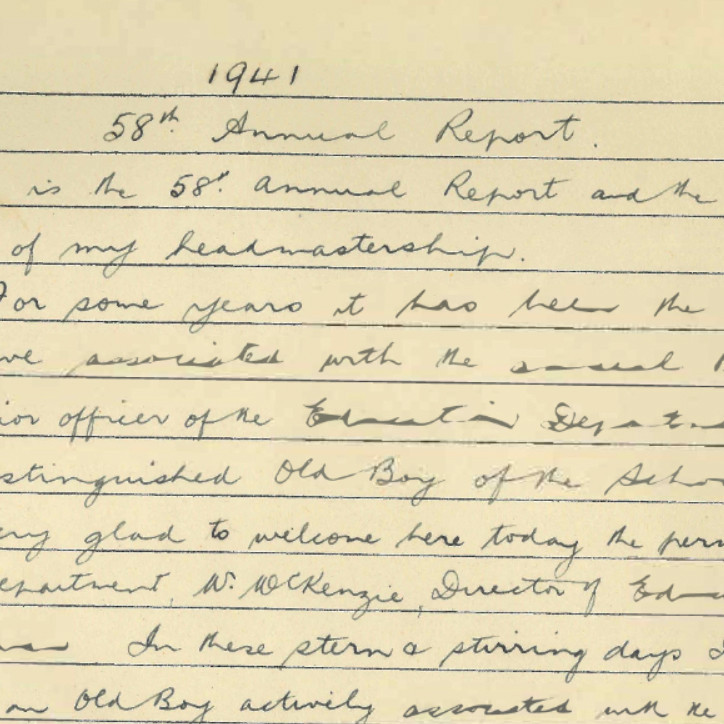 1941
58th Annual Report.
is the 58th Annual Report and the
of my headmastership.
For some years it has been the
ve associated with the annual
ior officer of the Education Departm
stinguished Old Boy of the Schoo
ery glad to welcome here today the perm
epartment, Mr. McKenzie, Director of Edu
In these stern & stirring days I
an Old Boy actively associated with the